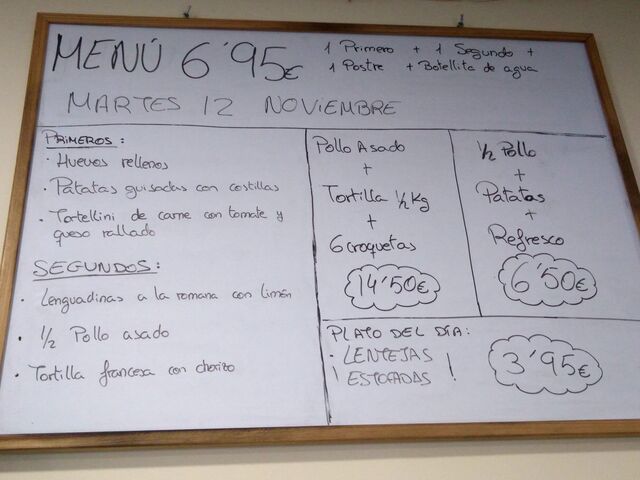 MENÚ 6'95€
1 Primero + 1 Segundo +
1 Postre + Botellita de agua
MARTES 12 NOVIEMBRE
PRIMEROS:
· Huevos rellenos
· Patatas guisadas con costillas
· Tortellini de carne con tomate y
queso rallado
SEGUNDOS:
· Lenguadinas a la romana con limón
· 1/2 Pollo asado
· Tortilla francesa con chorizo
Pollo Asado
+
Tortilla 1/2 Kg
+
6 croquetas
14'50€
1/2 Pollo
+
Patatas
+
Refresco
6'50€
PLATO DEL DÍA:
· LENTEJAS
¡ ESTOFADAS !
3'95€